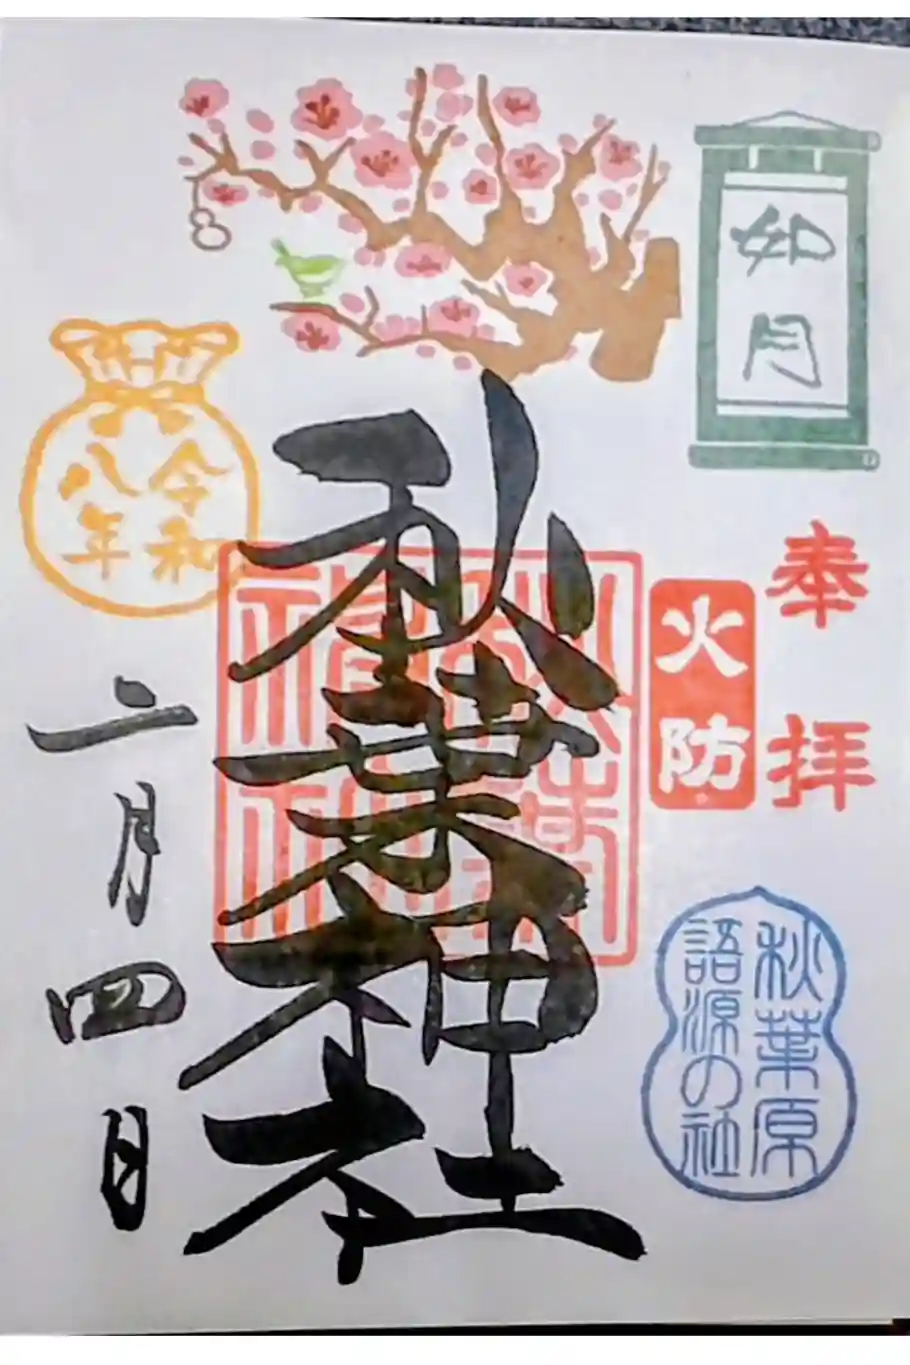 如月
奉拝
火防
秋葉原
語源の社
秋葉神社
秋葉神社
令和
八年
二月四日